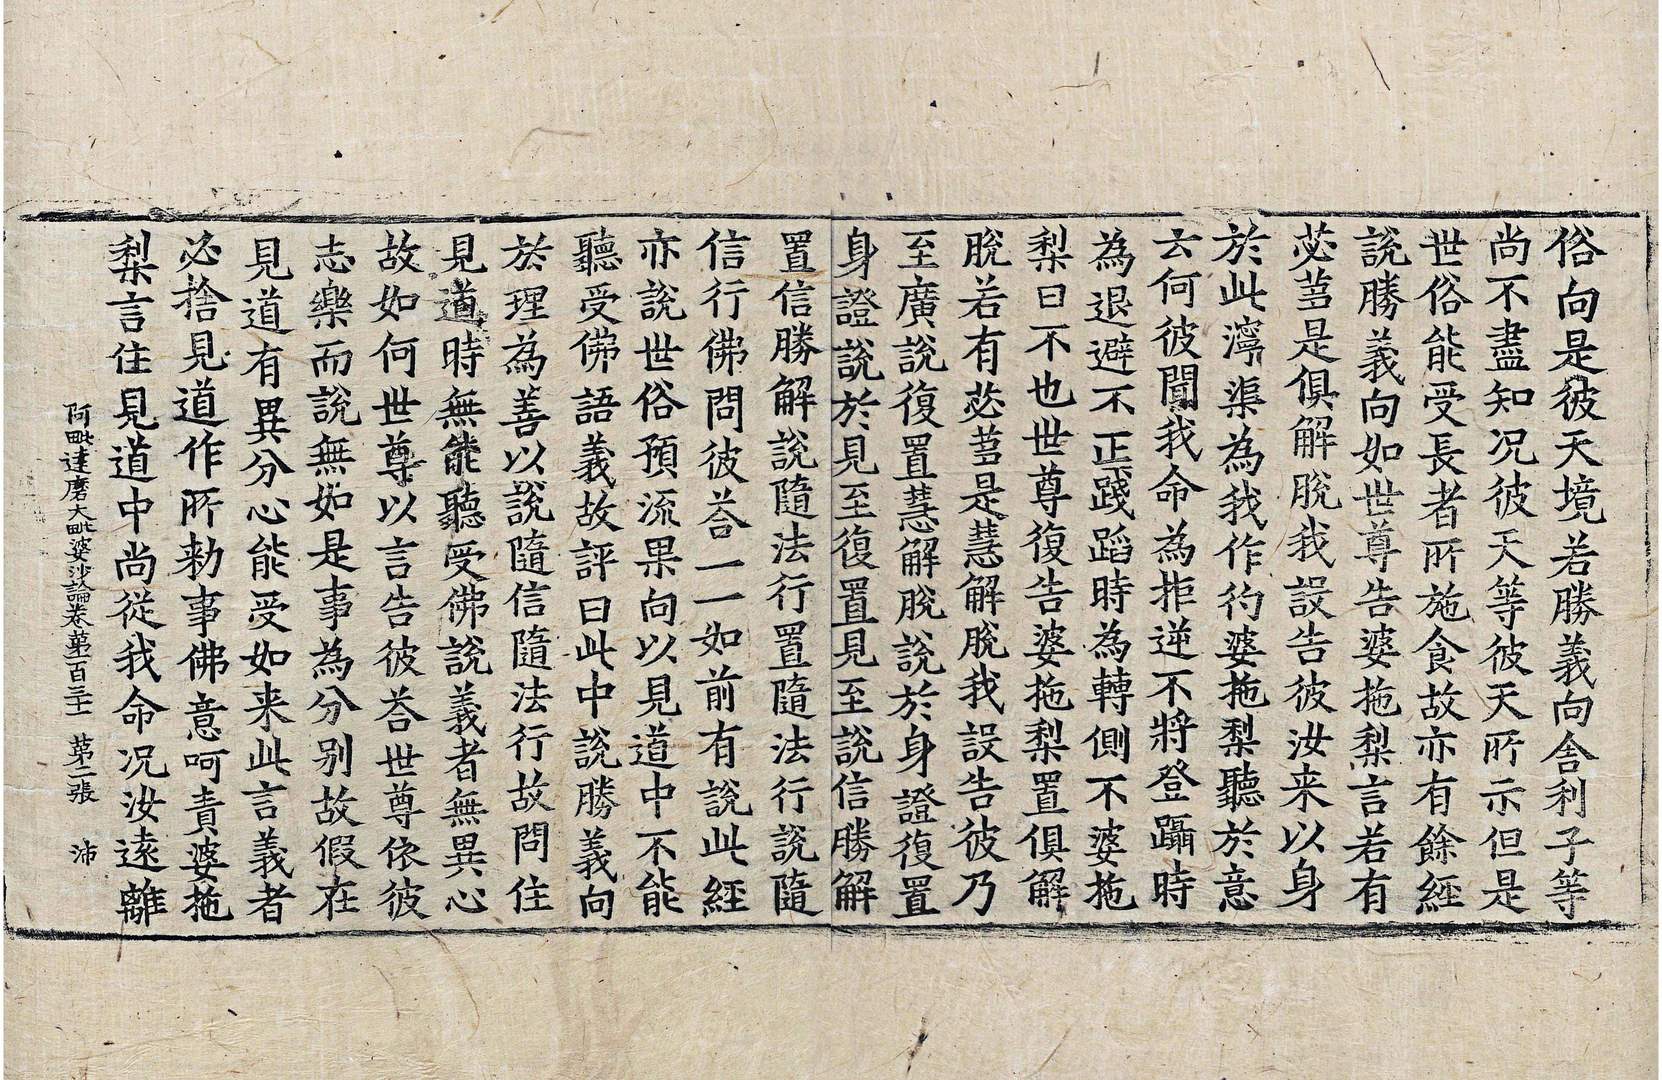 俗向是彼天境若勝義向舍利子等
尚不盡知况彼天等彼天所示但是
世俗能受長者所施食故亦有餘經
說勝義向如世尊告婆拖梨言若有
苾蒭是俱解脫我設告彼汝来以身
於此濘渠為我作彴婆拖梨聽於意
云何彼聞我命為拒逆不將登躡時
為退避不正踐蹈時為轉側不婆拖
梨曰不也世尊復告婆拖梨置俱解
脫若有苾蒭是慧解脫我設告彼乃
至廣說復置慧解脫說於身證復置
身證說於見至復置見至說信勝解
置信勝解說隨法行置隨法行說隨
信行佛問彼荅一一如前有說此經
亦說世俗預流果向以見道中不能
聽受佛語義故評曰此中說勝義向
於理為善以說隨信隨法行故問住
見道時無能聽受佛說義者無異心
故如何世尊以言告彼荅世尊依彼
志樂而說無如是事為分别故假在
見道有異分心能受如来此言義者
必捨見道作所勑事佛意呵責婆拖
梨言住見道中尚從我命况汝遠離
阿毗達磨大毗婆沙論卷苐一百三十一 苐二張 沛